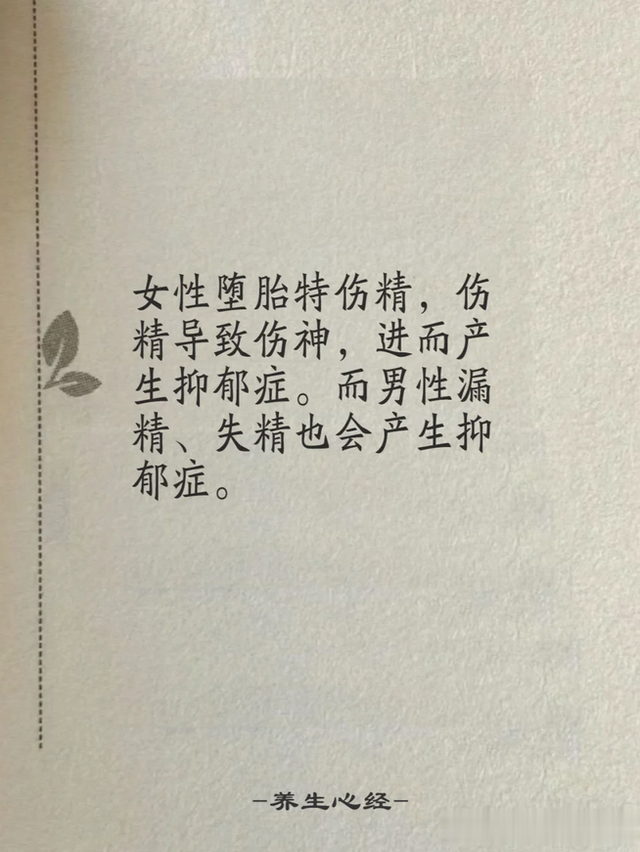 女性堕胎特伤精，伤
精导致伤神，进而产
生抑郁症。而男性漏
精、失精也会产生抑
郁症。
-养生心经-